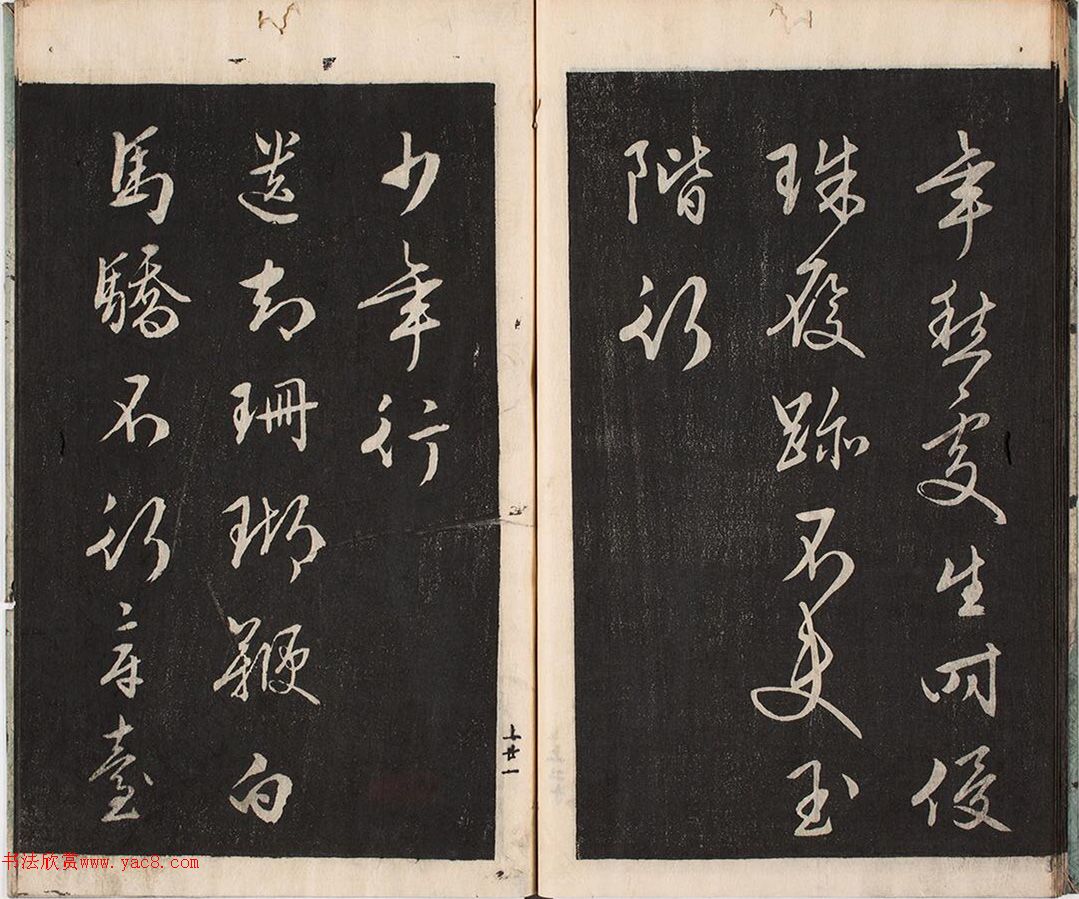 年愁處生時侵
珠履跡不使玉
階行
少年行
遺却珊瑚鞭白
馬驕不行章臺
上廿一
书法欣赏www.yac8.com